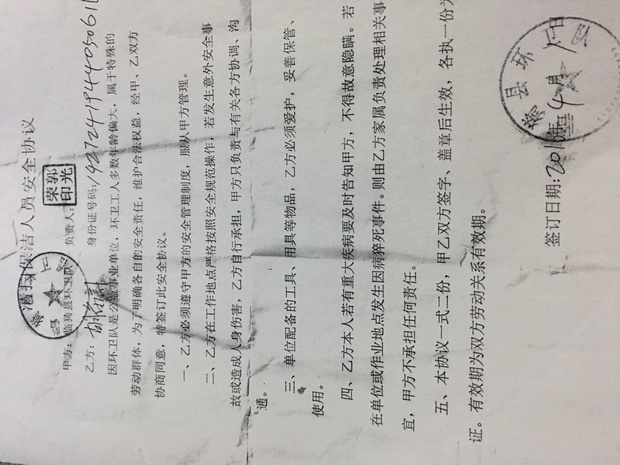 清扫保洁人员安全协议
甲方：临猗县环卫队 负责人：
郭光
荣印
乙方： 身份证号码：
因环卫队是公益事业单位，环卫工人多数年龄偏大，属于特殊的
劳动群体，为了明确各自的安全责任，维护合法权益，经甲、乙双方
协商同意，特签订此安全协议。
一、乙方必须遵守甲方的安全管理制度，服从甲方管理。
二、乙方在工作地点严格按照安全规范操作，若发生意外安全事
故或造成人身伤害，乙方自行承担，甲方只负责与有关各方协调、沟
通。
三、单位配备的工具、用具等物品，乙方必须爱护，妥善保管、
使用。
四、乙方本人若有重大疾病要及时告知甲方，不得故意隐瞒。若
在单位或作业地点发生因病猝死事件。则由乙方家属负责处理相关事
宜，甲方不承担任何责任。
五、本协议一式二份，甲乙双方签字、盖章后生效，各执一份为
证。有效期为双方劳动关系有效期。
县环卫队
签订日期：20 年4月1日